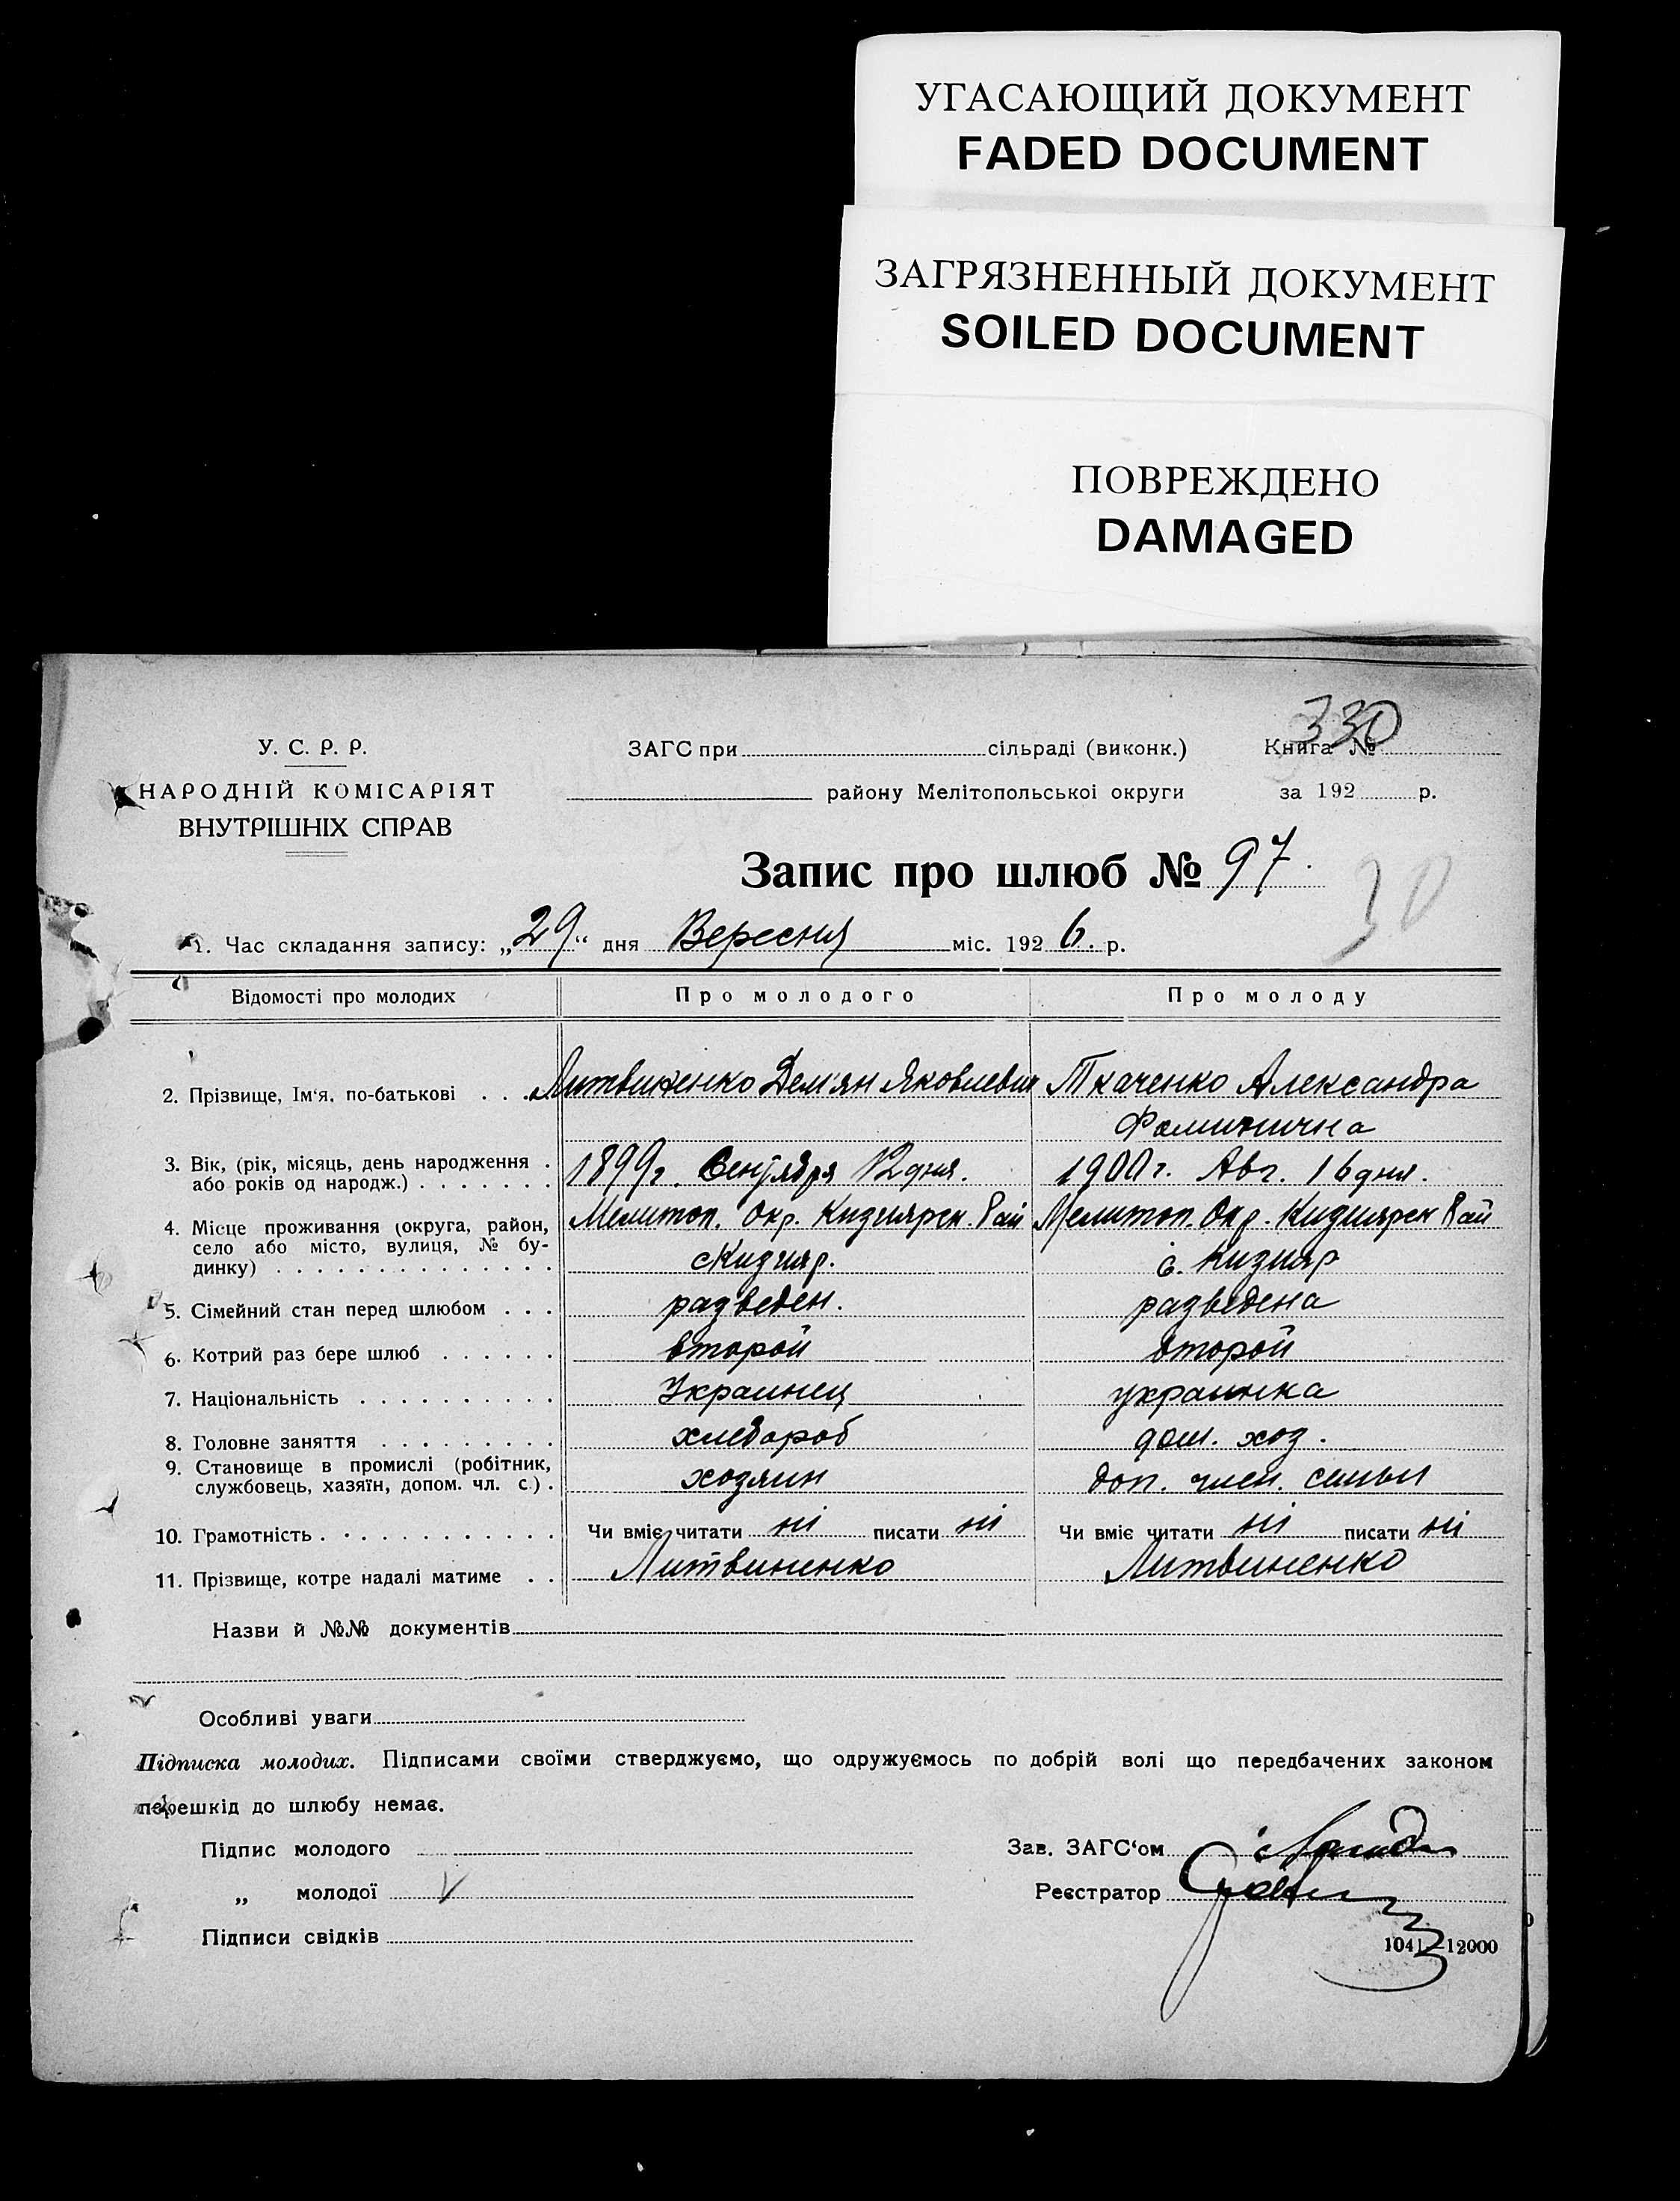 УГАСАЮЩИЙ ДОКУМЕНТ
FADED DOCUMENT
ЗАГРЯЗНЕННЫЙ ДОКУМЕНТ
SOILED DOCUMENT
ПОВРЕЖДЕНО
DAMAGED
330
У. С. Р. Р.
НАРОДНІЙ КОМІСАРІЯТ
ВНУТРІШНІХ СПРАВ
ЗАГС при сільраді (виконк.) Книга №
району Мелітопольської округи за 192 р.
Запис про шлюб № 97.
30
1. Час складання запису: „29“ дня Вересня міс. 1926. р.
Відомості про молодих Про молодого Про молоду
2. Прізвище, Ім‘я, по-батькові . . . Литвиненко Демʼян Яковлевич Ткаченко Александра
Фоминична
3. Вік, (рік, місяць, день народження . 1899г. Сентября 12 дня. 1900г. Авг. 16 дня.
або років од народж.) . . . . . . .
4. Місце проживання (округа, район, Мелитоп. Окр. Кизиярск. Рай Мелитоп. Окр. Кизиярск Рай
село або місто, вулиця, № бу-
динку) . . . . . . . . . . . . . . с Кизияр. с. Кизияр
5. Сімейний стан перед шлюбом . . . разведен. разведена
6. Котрий раз бере шлюб . . . . . . второй второй
7. Національність . . . . . . . . . . Украинец украинка
8. Головне заняття . . . . . . . . . хлебороб дом. хоз.
9. Становище в промислі (робітник, хозяин доп. член. семьи
службовець, хазяїн, допом. чл. с.) .
10. Грамотність . . . . . . . . . . . . Чи вміє читати ні писати ні Чи вміє читати ні писати ні
11. Прізвище, котре надалі матиме . . Литвиненко Литвиненко
Назви й №№ документів
Особливі уваги
Підписка молодих. Підписами своїми стверджуємо, що одружуємось по добрій волі що передбачених законом
перешкід до шлюбу немає.
Підпис молодого Зав. ЗАГС‘ом
„ молодої Реєстратор
Підписи свідків
1041—12000